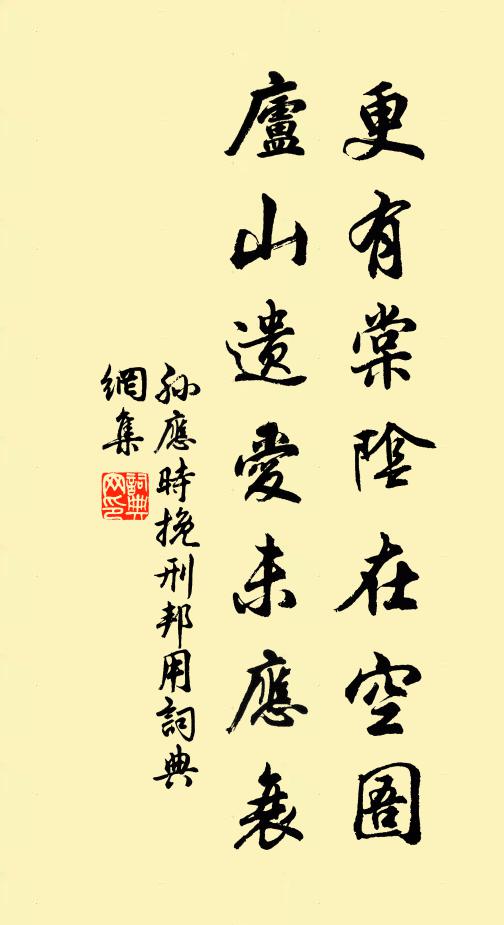 更有棠陰在空圄
廬山遺愛未應衰
孫應時挽刑邦用詞典
網集
詞典
网印